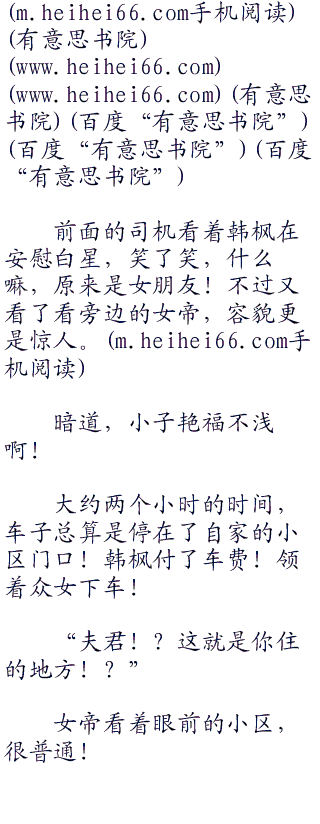 (m.heihei66.com手机阅读)
(有意思书院)
(www.heihei66.com)
(www.heihei66.com) (有意思
书院) (百度“有意思书院”)
(百度“有意思书院”) (百度
“有意思书院”)
前面的司机看着韩枫在
安慰白星，笑了笑，什么
嘛，原来是女朋友！不过又
看了看旁边的女帝，容貌更
是惊人。(m.heihei66.com手
机阅读)
暗道，小子艳福不浅
啊！
大约两个小时的时间，
车子总算是停在了自家的小
区门口！韩枫付了车费！领
着众女下车！
“夫君！？这就是你住
的地方！？”
女帝看着眼前的小区，
很普通！